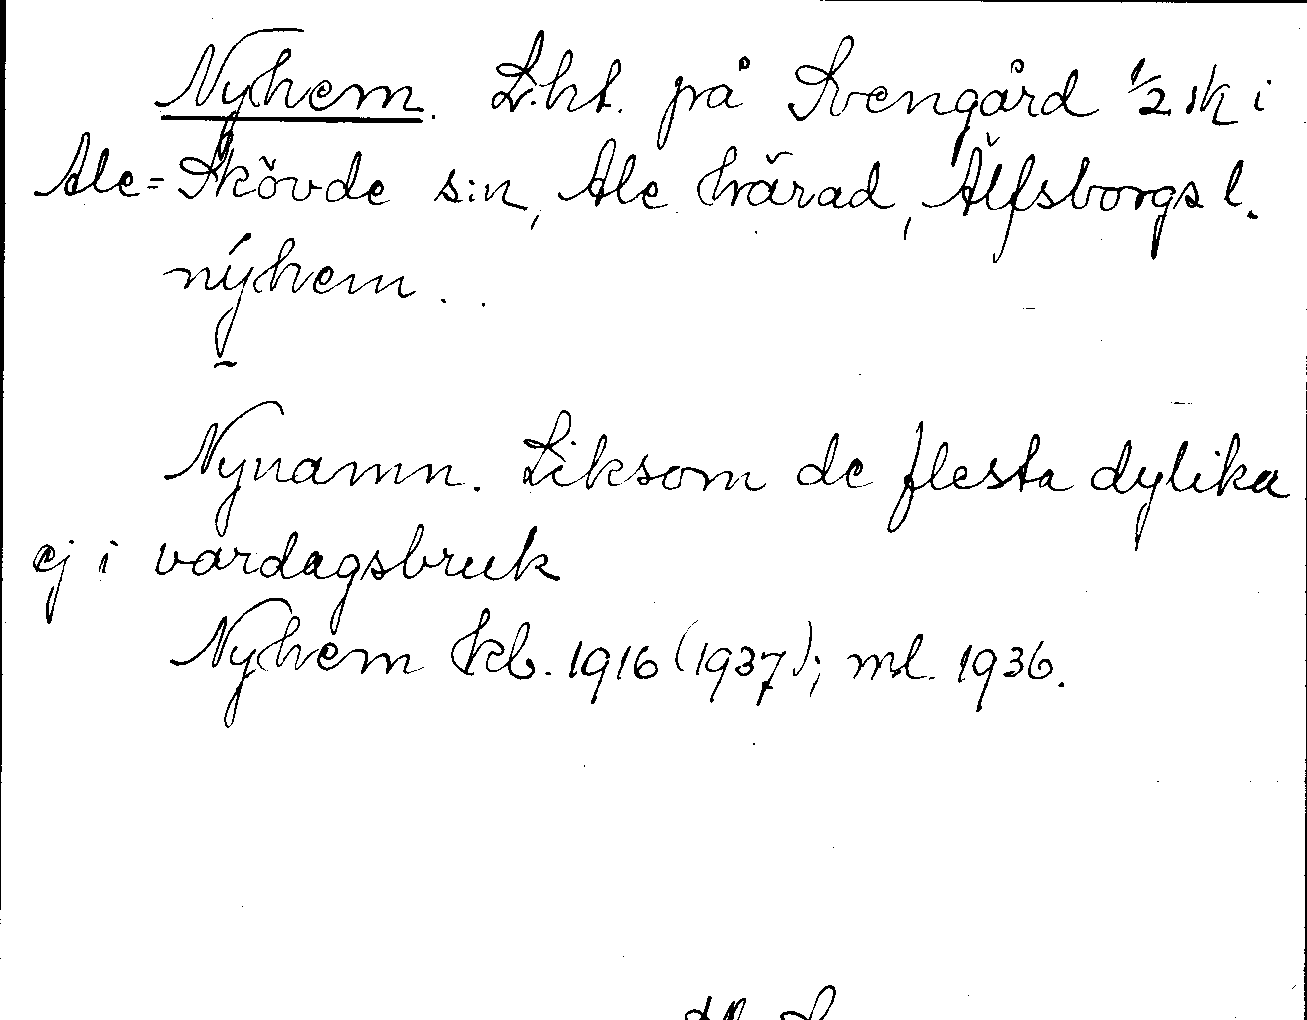 Nyhem. L.ht. på Svengård 1/2 sk i
Ale=Skövde s:n, Ale härad, Älfsborgs l.
nýhem..
Nynamn. Liksom de flesta dylika
ej i vardagsbruk
Nyhem kb. 1916 (1937); ml. 1936.